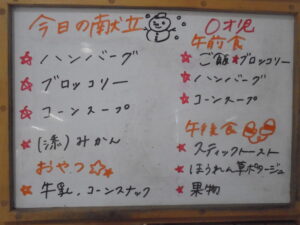 今日の献立
☆ハンバーグ
☆ブロッコリー
☆コーンスープ
☆(添)みかん
おやつ☆☆
☆牛乳、コーンスナック
0才児
午前食
☆ご飯☆ブロッコリー
☆ハンバーグ
☆コーンスープ
午後食
☆スティックトースト
☆ほうれん草ポタージュ
☆果物